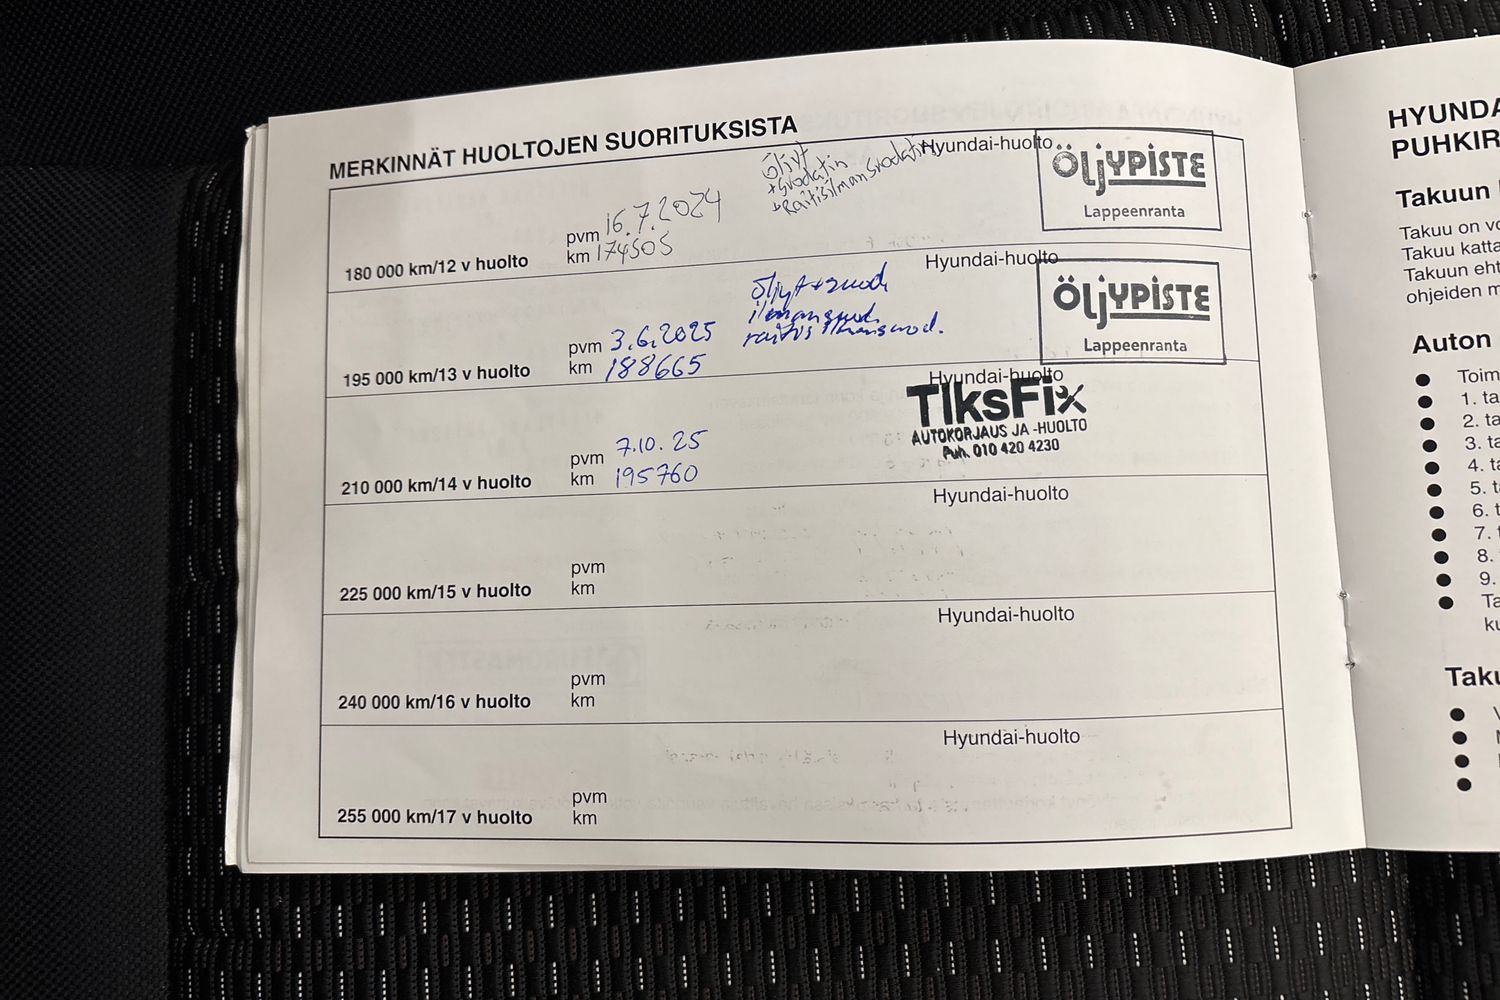 MERKINNÄT HUOLTOJEN SUORITUKSISTA
180 000 km/12 v huolto
pvm 16.7.2024
km 174505
Öljyt
+Srodatin
+Raitisilmansrodatin
Hyundai-huolto
ÖLJYPISTE
Lappeenranta
195 000 km/13 v huolto
pvm 3.6.2025
km 188665
öljyt+suod
ilmansuod.
raitis ilmansuod.
Hyundai-huolto
ÖLJYPISTE
Lappeenranta
210 000 km/14 v huolto
pvm 7.10.25
km 195760
Hyundai-huolto
TIksFix
AUTOKORJAUS JA -HUOLTO
Puh. 010 420 4230
225 000 km/15 v huolto
pvm
km
Hyundai-huolto
240 000 km/16 v huolto
pvm
km
Hyundai-huolto
255 000 km/17 v huolto
pvm
km
Hyundai-huolto
HYUNDA
PUHKIR
Takuun
Takuu on vo
Takuu katta
Takuun eht
ohjeiden m
Auton
● Toim
● 1. ta
● 2. ta
● 3. ta
● 4. ta
● 5. ta
● 6. t
● 7. t
● 8.
● 9.
● Ta
ku
Taku